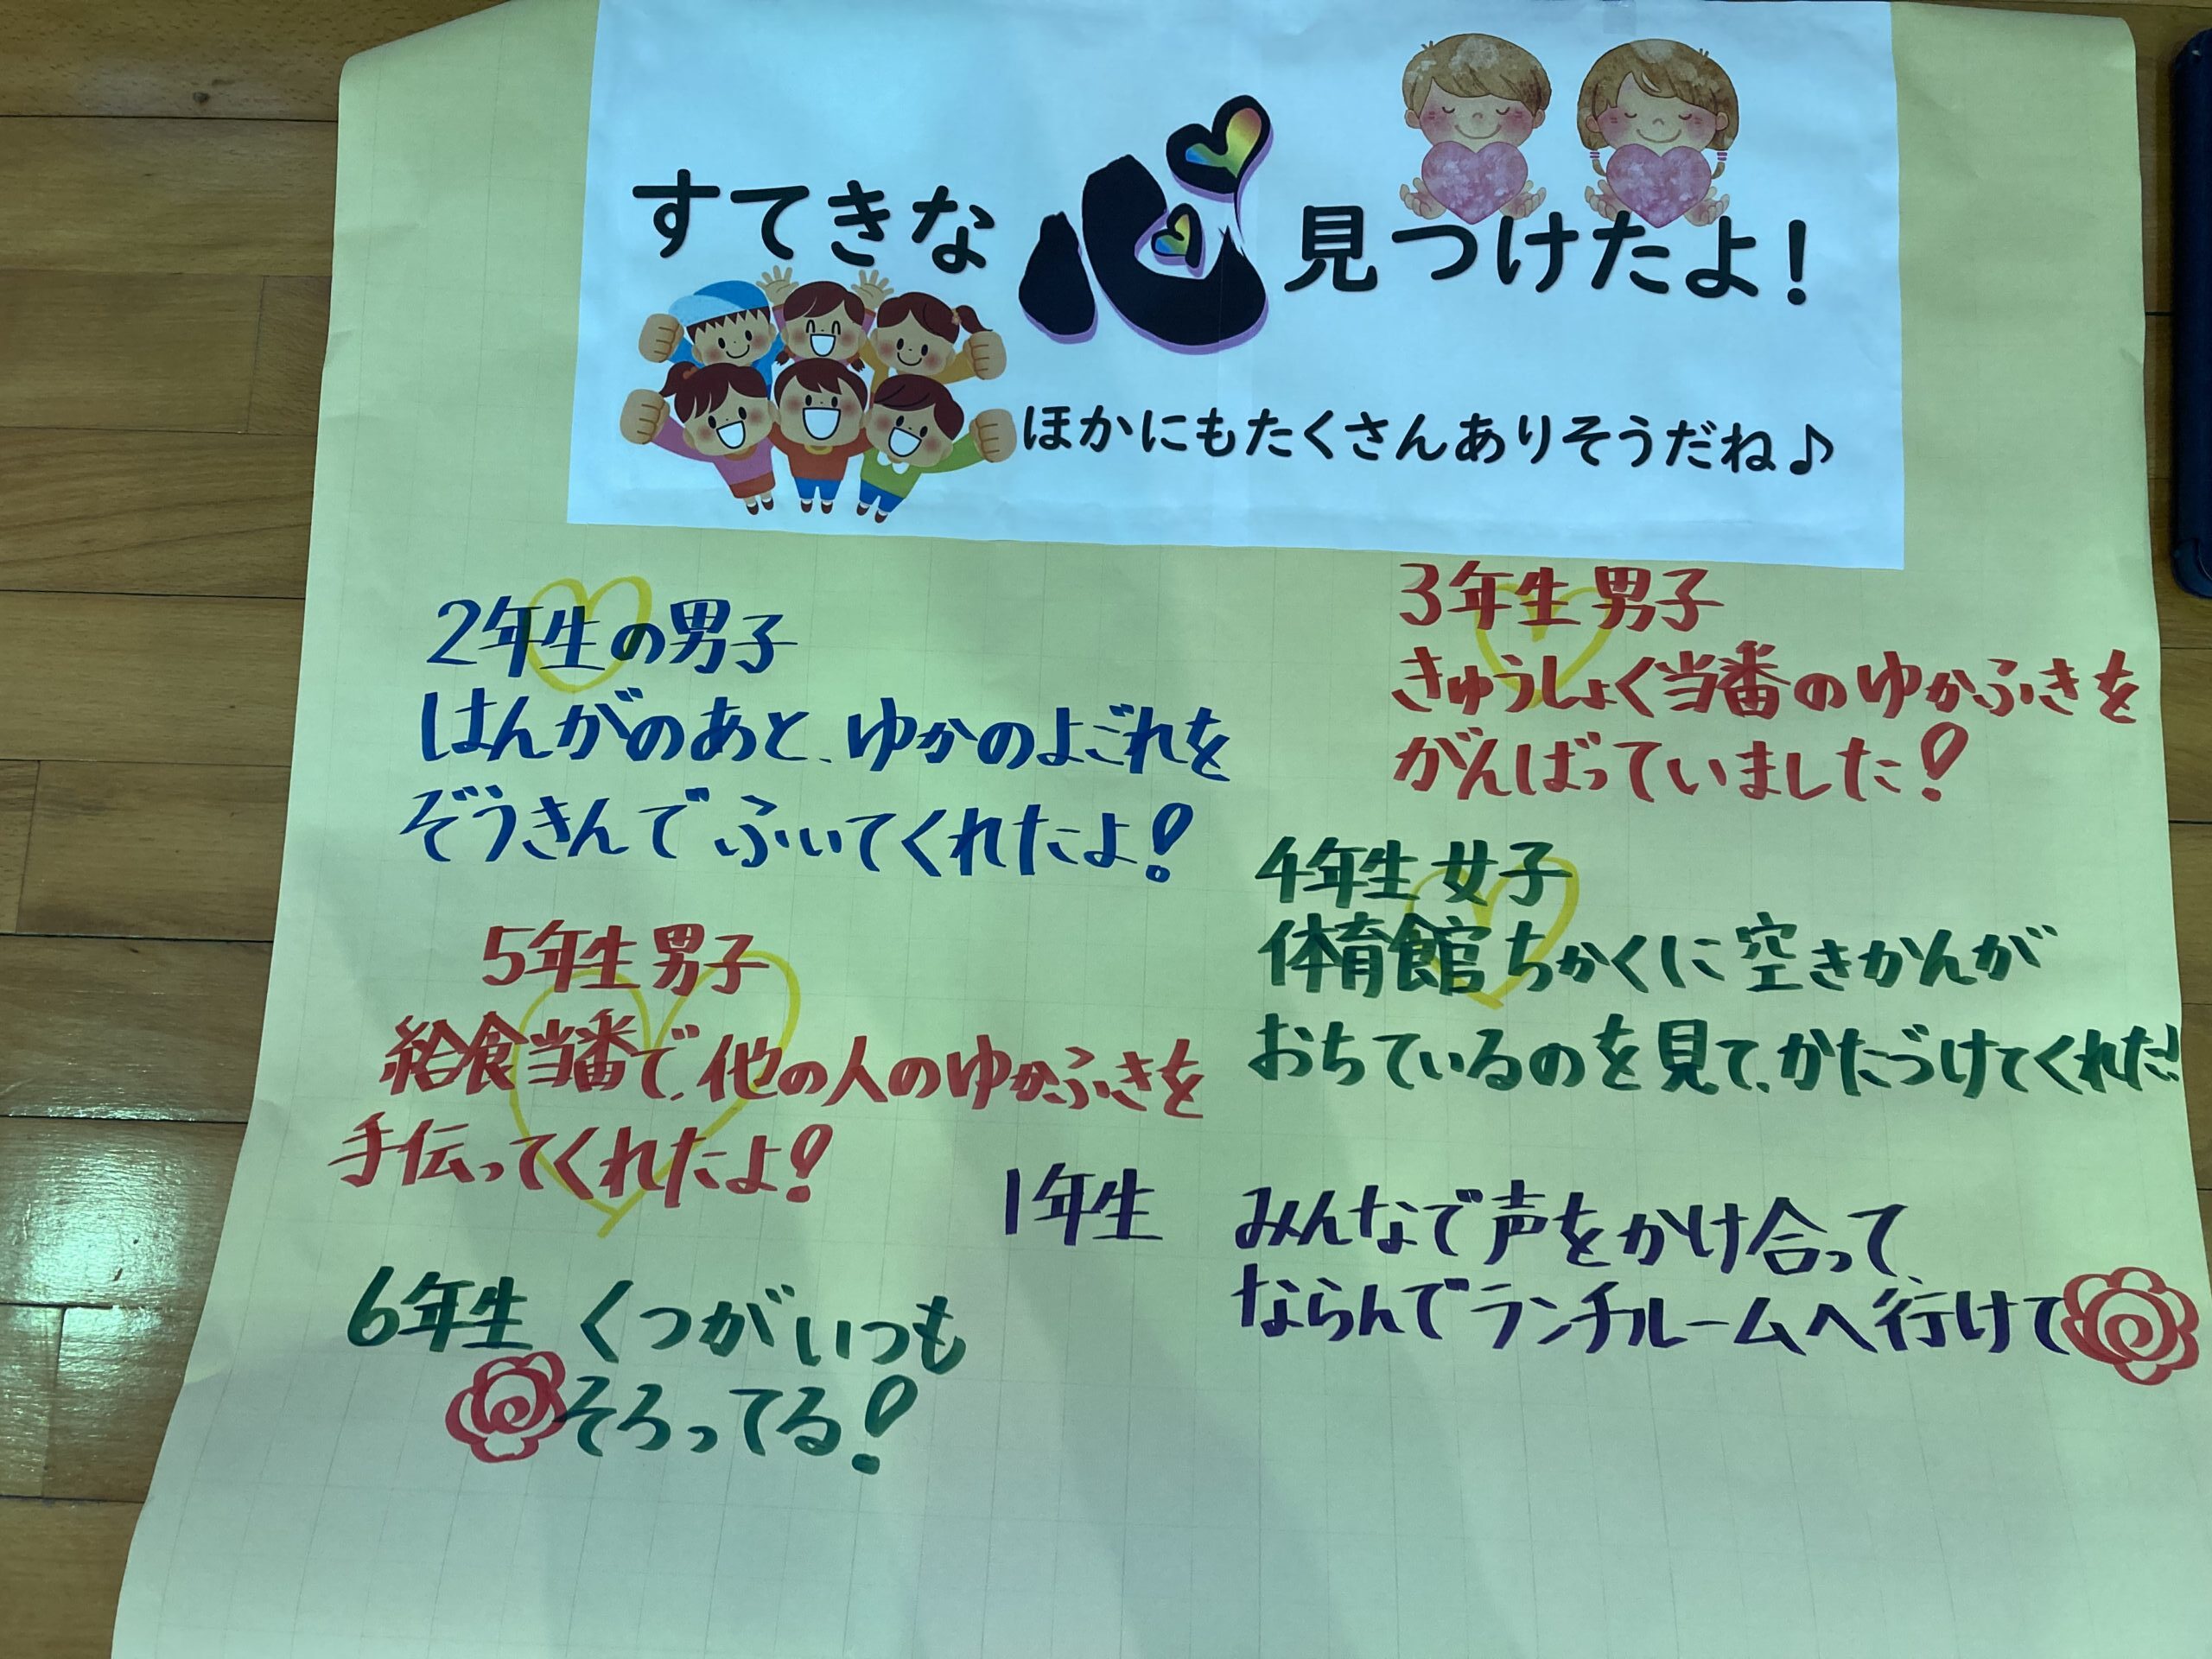 すてきな心見つけたよ!
ほかにもたくさんありそうだね♪
2年生の男子
はんがのあと、ゆかのよごれを
ぞうきんでふいてくれたよ!
3年生 男子
きゅうしょく当番のゆかふきを
がんばっていました!
4年生 女子
体育館ちかくに空きかんが
おちているのを見て、かたづけてくれた!
5年生 男子
給食当番で、他の人のゆかふきを
手伝ってくれたよ!
1年生 みんなで声をかけ合って
ならんでランチルームへ行けて
6年生 くつがいつも
そろってる!